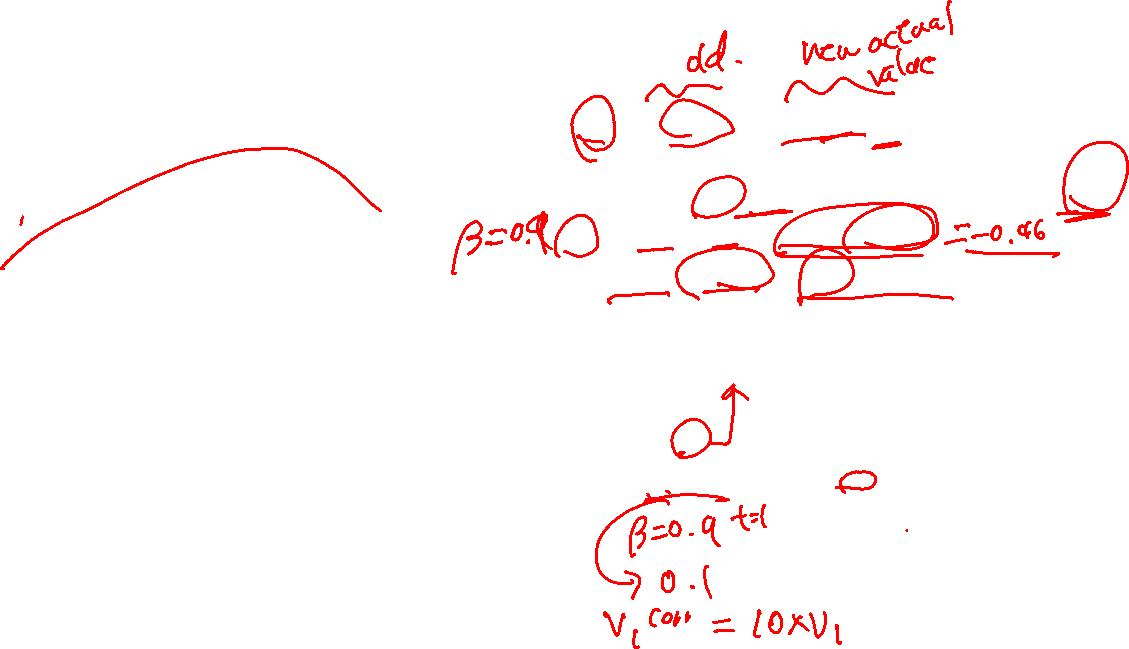 old.
new actual
value
β=0.9
=-0.46
β=0.9 t=1
0.1
V₁ᶜᵒʳʳ = 10×V₁